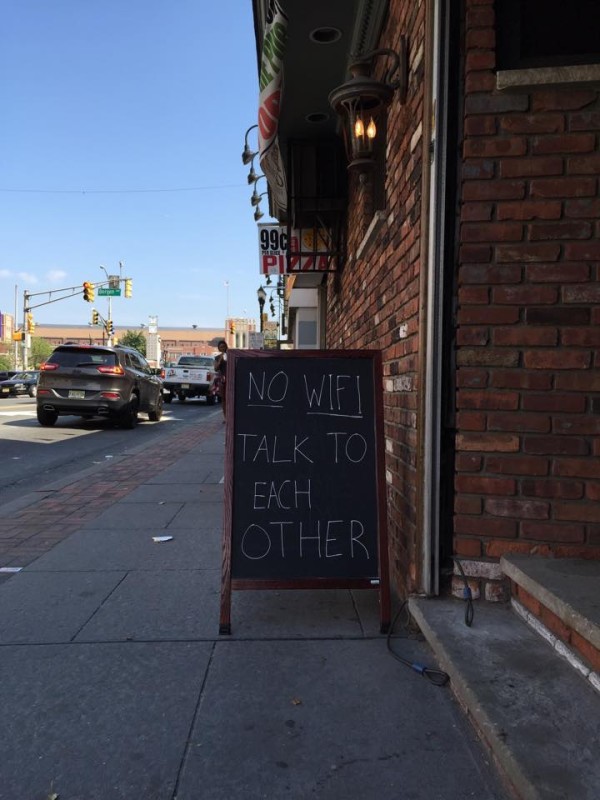 99¢
PIZZA
NO WIFI
TALK TO
EACH
OTHER